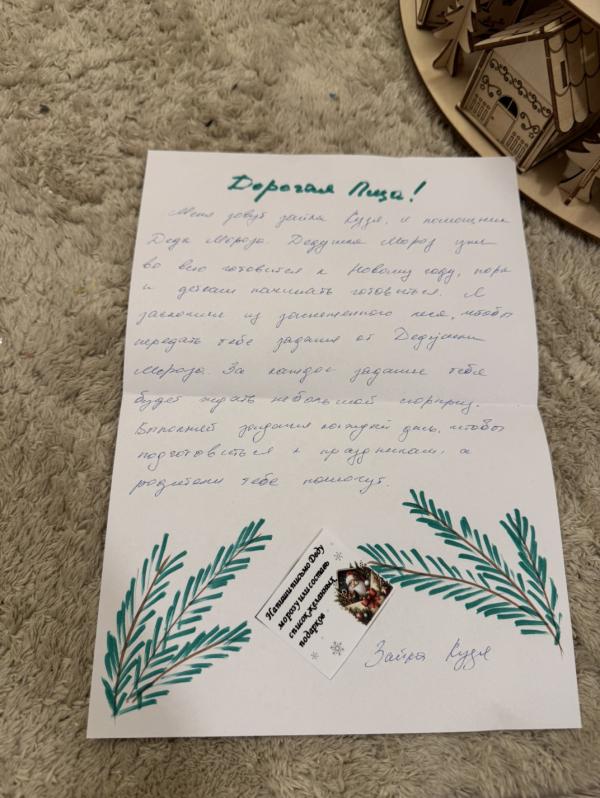 Дорогая Лиза!
Меня зовут зайка Кузя, я помощник
Деда Мороза. Дедушка Мороз уже
во всю готовится к Новому году, пора
и деткам начинать готовиться. Я
заскочил из заснеженного леса, чтобы
передать тебе задания от Дедушки
Мороза. За каждое задание тебя
будет ждать небольшой сюрприз.
Выполняй задания каждый день, чтобы
подготовиться к праздникам, а
родители тебе помогут.
Напиши письмо Деду
морозу или составь
список желаемых
подарков
Зайка Кузя